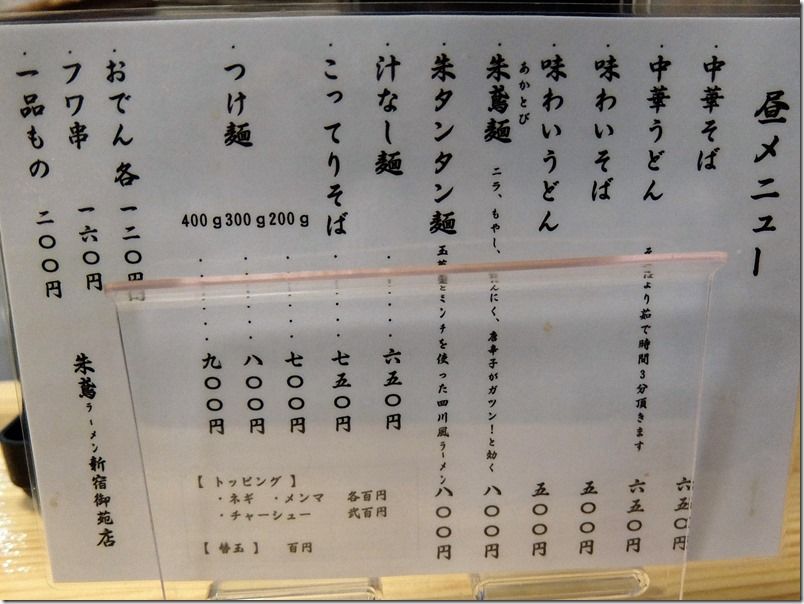 昼メニュー
・中華そば 六五〇円
・中華うどん より茹で時間3分頂きます 六五〇円
・味わいそば 五〇〇円
・味わいうどん 五〇〇円
・朱鳶麺 ニラ、もやし、にんにく、唐辛子がガツン!と効く 八〇〇円
あかとび
・朱タンタン麺 玉葱とミンチを使った四川風ラーメン 八〇〇円
・汁なし麺 ・・・・・六五〇円
・こってりそば ・・・・・七五〇円
・つけ麺
200g ・・・・・七〇〇円
300g ・・・・・八〇〇円
400g ・・・・・九〇〇円
【トッピング】
・ネギ ・メンマ 各百円
・チャーシュー 弐百円
【替玉】 百円
・おでん 各 一二〇円
・フワ串 一六〇円
・一品もの 二〇〇円
朱鳶ラーメン新宿御苑店